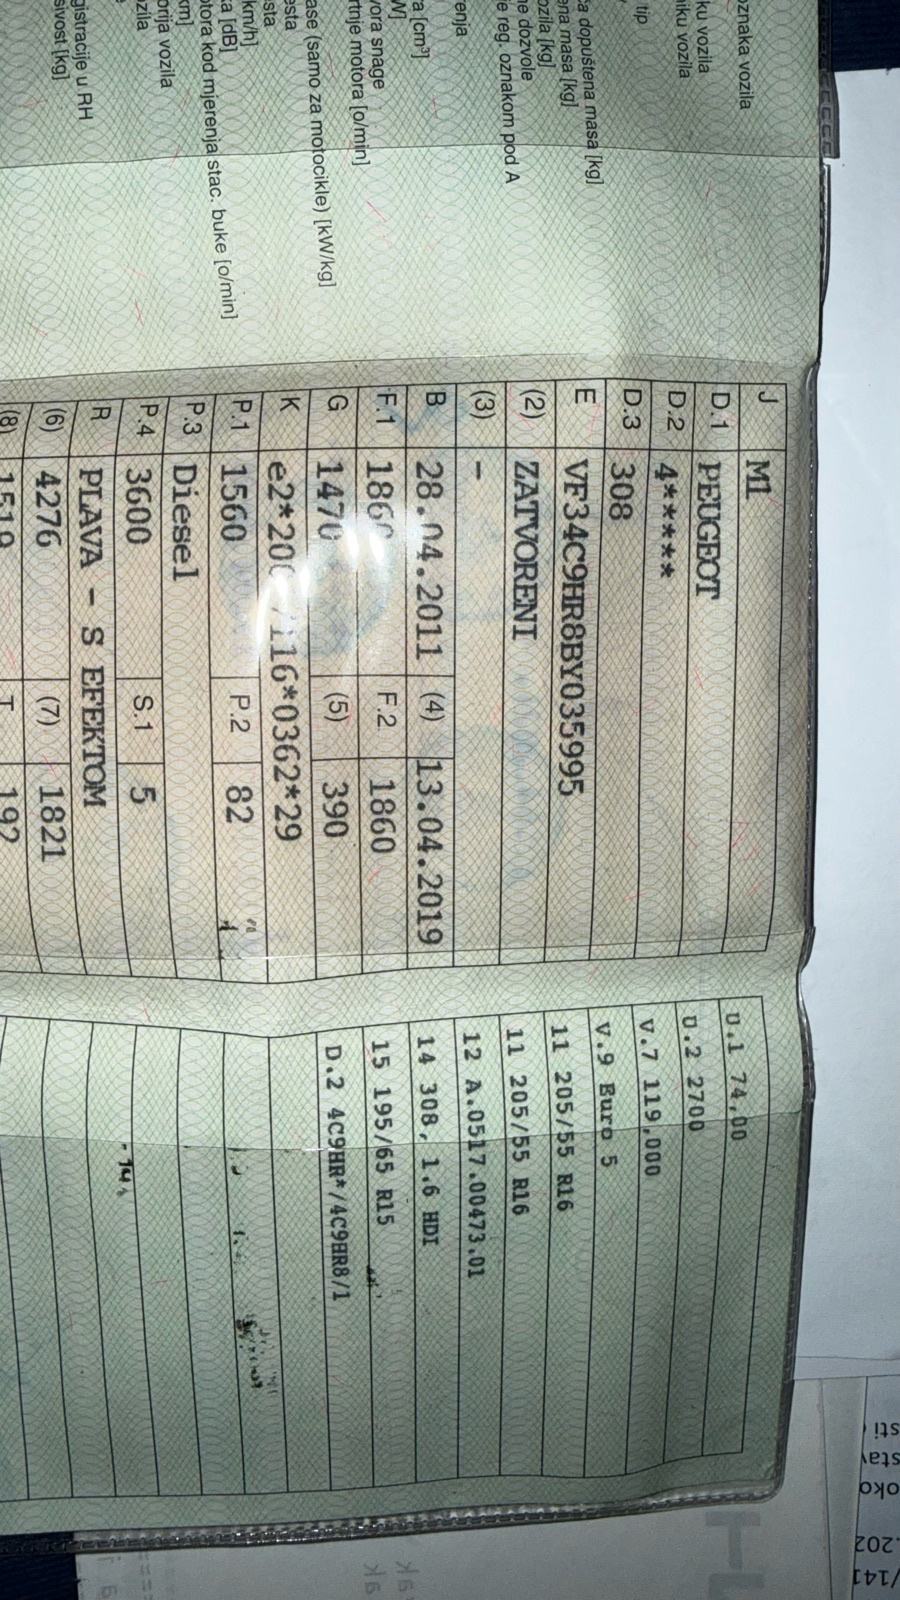 oznaka vozila
ku vozila
niku vozila
tip
a dopuštena masa [kg]
ena masa [kg]
ozila [kg]
ne dozvole
e reg. oznakom pod A
renja
a [cm³]
W]
vora snage
rtnje motora [o/min]
ase (samo za motocikle) [kW/kg]
esta
sta
km/h]
ka [dB]
otora kod mjerenja stac. buke [o/min]
km]
orija vozila
zila
gistracije u RH
sivost [kg]
J M1
D.1 PEUGEOT
D.2 4*****
D.3 308
E VF34C9HR8BY035995
(2) ZATVORENI
(3) -
B 28.04.2011 (4) 13.04.2019
F.1 1860 F.2 1860
G 1470 (5) 390
K 16*0362*29
P.1 1560 P.2 82
P.3 Diesel
P.4 3600 S.1 5
R PLAVA - S EFEKTOM
(6) 4276 (7) 1821
(8) 1519 T 192
U.1 74,00
U.2 2700
V.7 119,000
V.9 Euro 5
11 205/55 R16
11 205/55 R16
12 A.0517.00473.01
14 308, 1.6 HDI
15 195/65 R15
D.2 4C9HR*/4C9HR8/1
sti
stav
oko
.202
/141